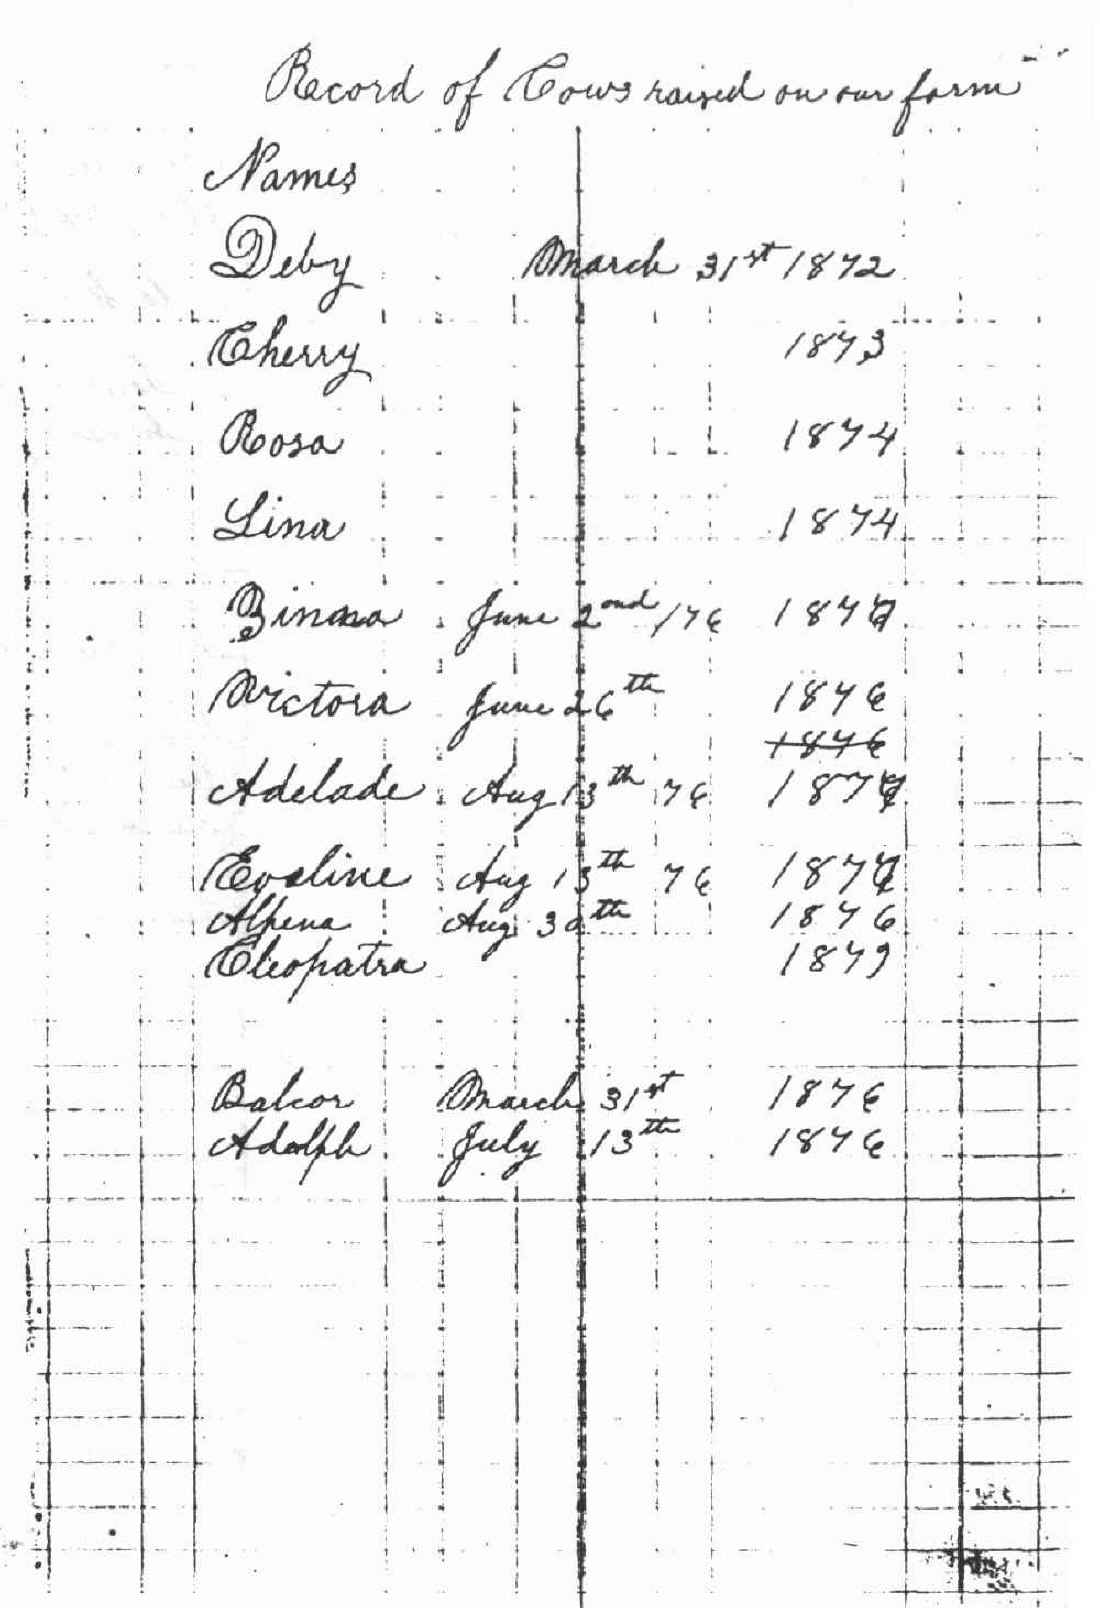 Record of Cows raised on our farm
Names
Deby March 31st 1872
Cherry 1873
Rosa 1874
Lina 1874
June 2nd /76 1877
Victora June 26th 1876
1876
Adelade Aug 13th 76 1877
Eveline Aug 13th 76 1877
Alpena Aug 30th 1876
Cleopatra 1879
Balcor March 31st 1876
Adolph July 13th 1876